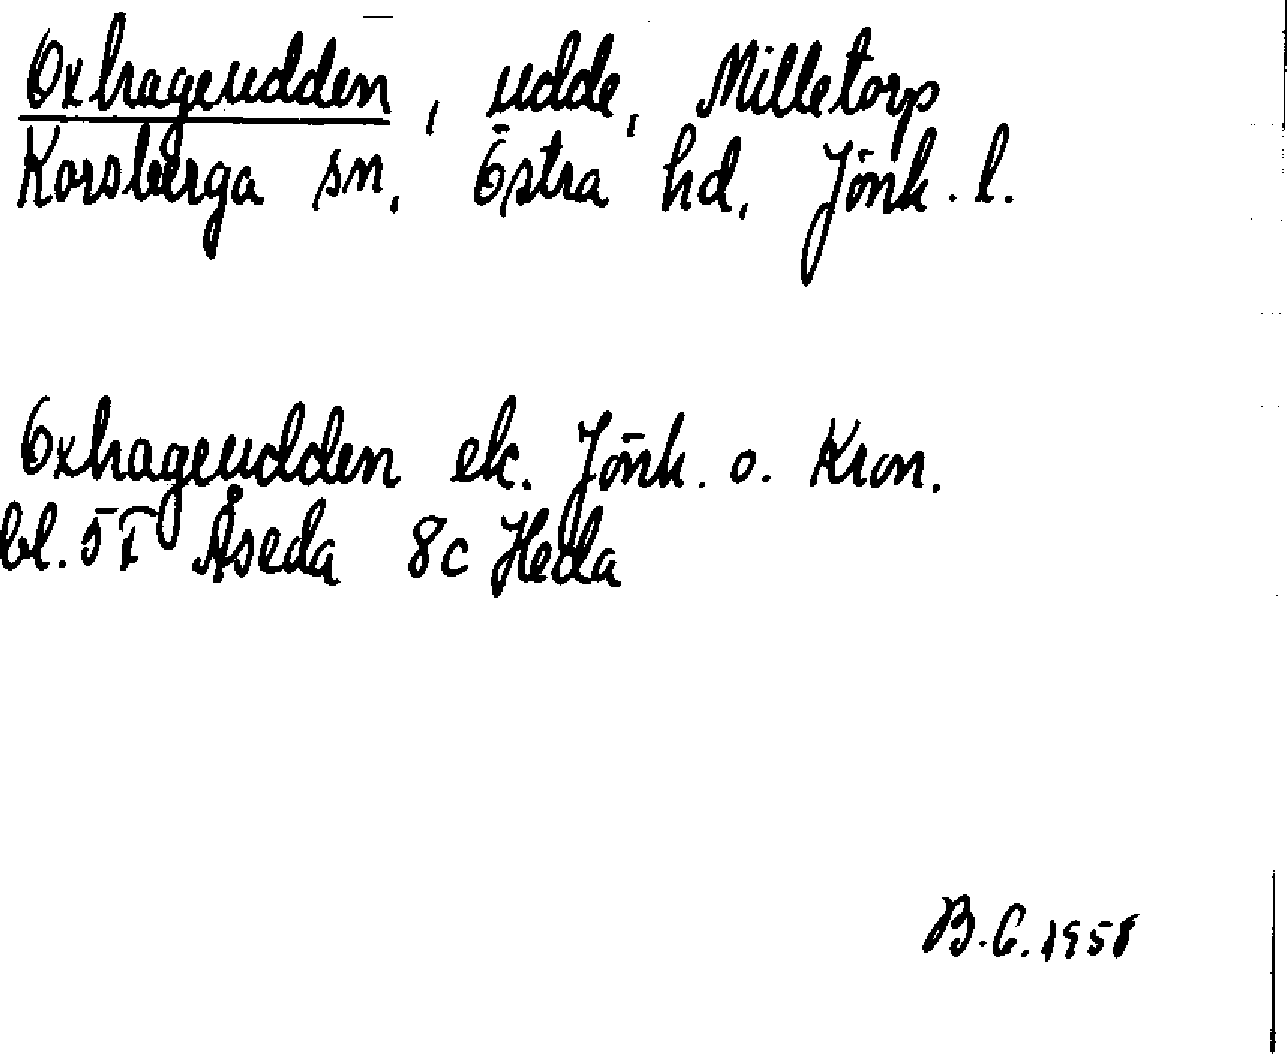 Oxhageudden, udde, Milletorp
Korsberga sn, Östra hd, Jönk. l.
Oxhageudden ek. Jönk. o. Kron.
bl. 5I Åseda 8c Heda
B.G. 1958